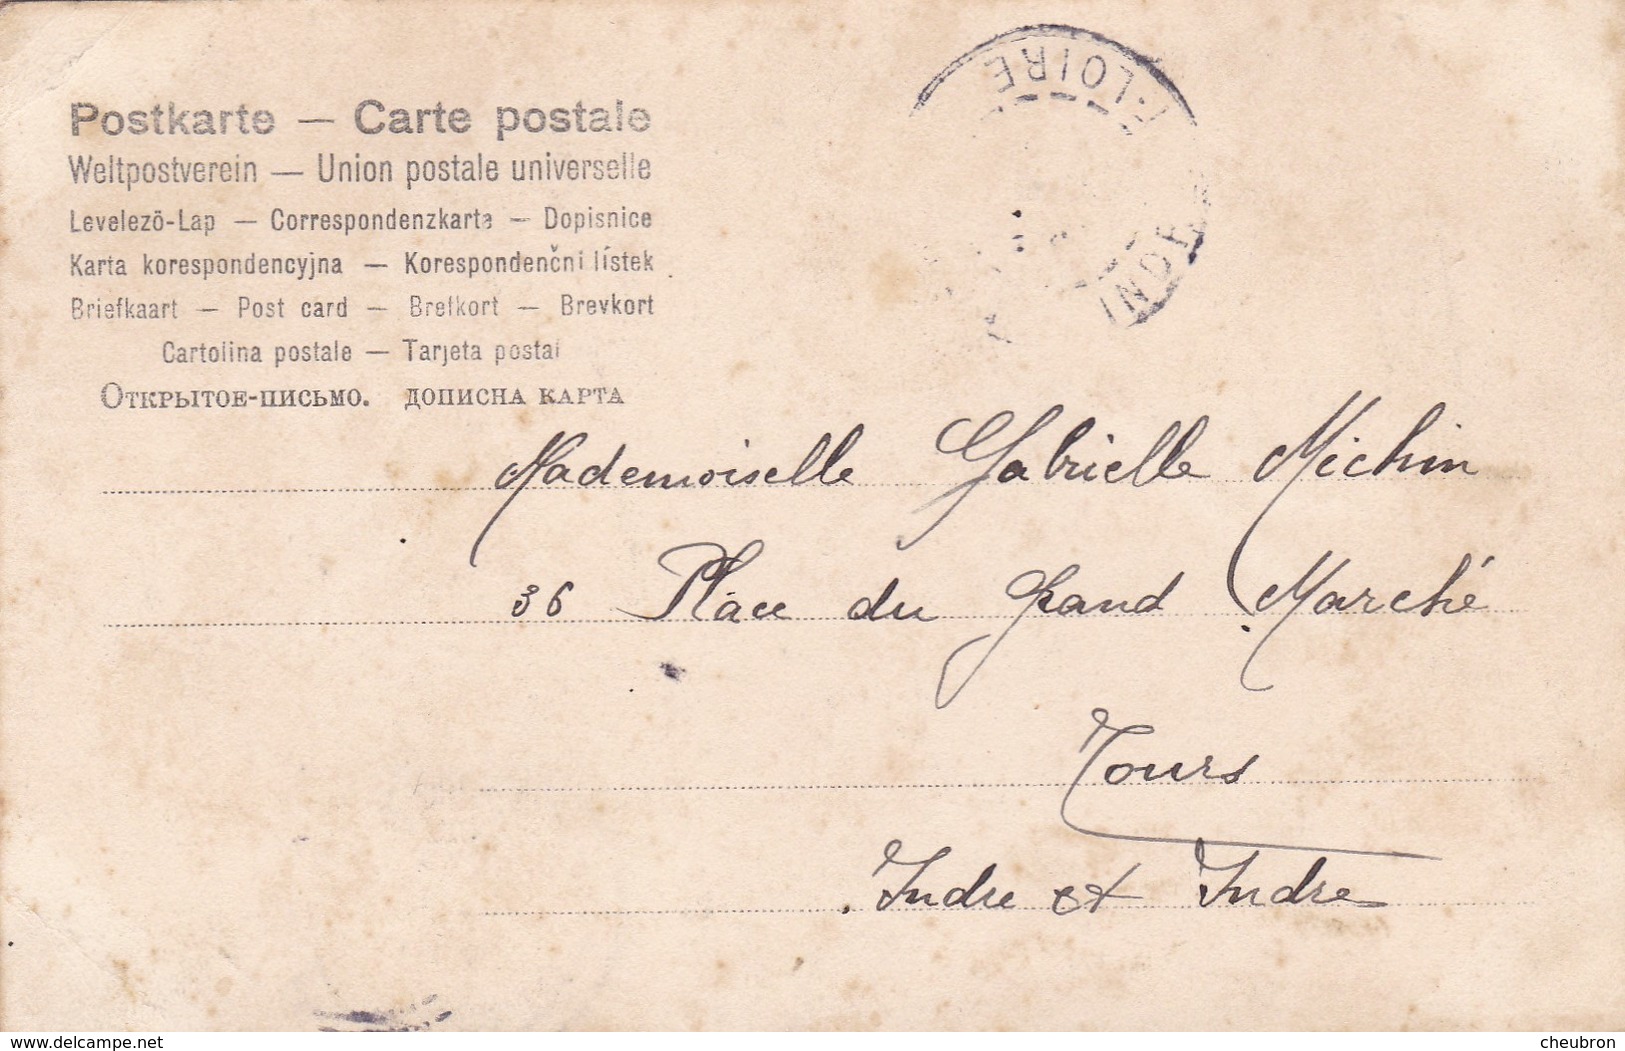 Postkarte — Carte postale
Weltpostverein — Union postale universelle
Levelezö-Lap — Correspondenzkarta — Dopisnice
Karta korespondencyjna — Korespondenčni lístek
Briefkaart — Post card — Brefkort — Brevkort
Cartolina postale — Tarjeta postal
Открытое-письмо. дописна карта
LOIRE
INDRE
Mademoiselle Gabrielle Michin
36 Place du Grand Marché
Tours
Indre et Indre
www.delcampe.net
cheubron